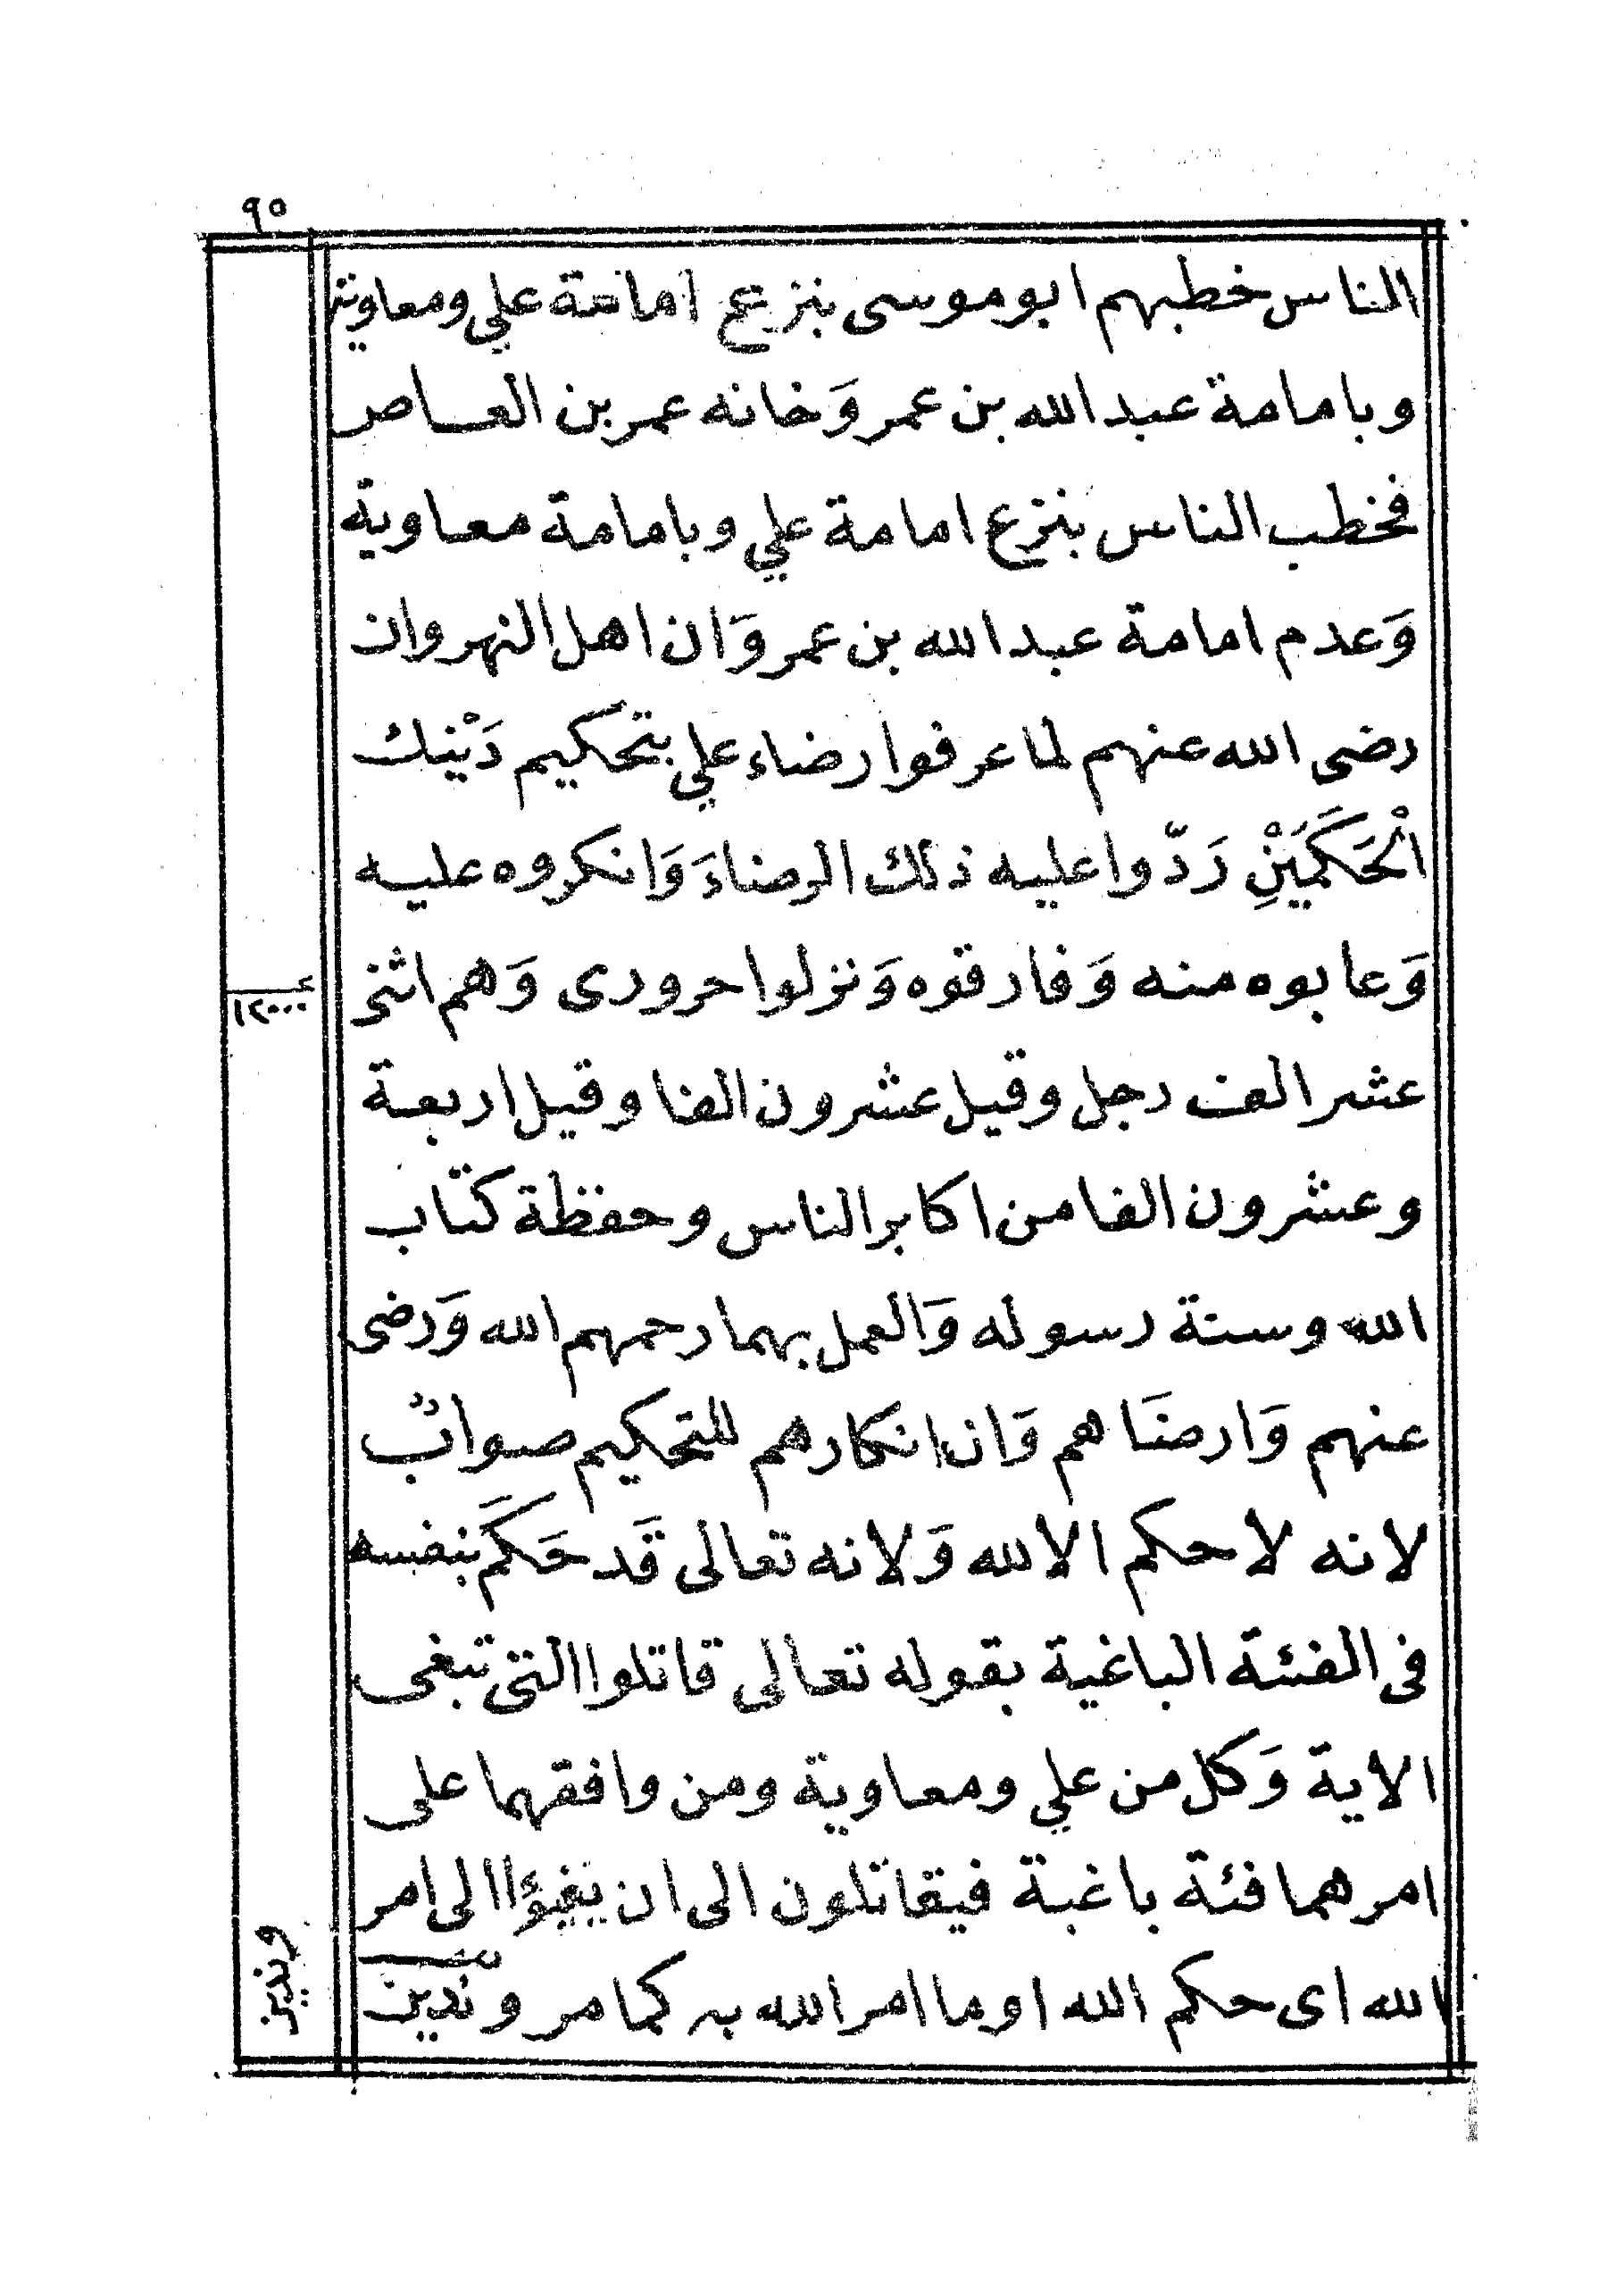 ٩٥
الناس خطبهم ابو موسى بنزع امامة علي ومعاوية
وبامامة عبدالله بن عمر وَخانه عمر بن العاص
فخطب الناس بنزع امامة علي وبامامة معاوية
وَعدم امامة عبدالله بن عمر وَان اهل النهروان
رضى الله عنهم لما عرفوا رضاء علي بتحكيم دَيْنِك
الْحَكَمَيْنِ رَدّوا عليه ذلك الرضاءَ وَانكروه عليه
وَعابوه منه وَفارقوه وَنزلوا حرورى وَهم اثنى
١٢٠٠٠
عشر الف رجل وقيل عشرون الفا وقيل اربعة
وعشرون الفا من اكابر الناس وحفظة كتاب
الله وسنة رسوله وَالعمل بهما رحمهم الله وَرضى
عنهم وَارضَاهم وَان انكارهم للتحكيم صوابٌ
لانه لا حكم الا لله وَلانه تعالى قَد حَكَمَ بنفسه
فى الفئة الباغية بقوله تعالى قاتلوا التى تبغى
الاية وَكل من علي ومعاوية ومن وافقهما على
امرهما فئة باغية فيقاتلون الى ان يفيؤا الى امر
الله اى حكم الله او ما امر الله به كما مر وندين
وندين